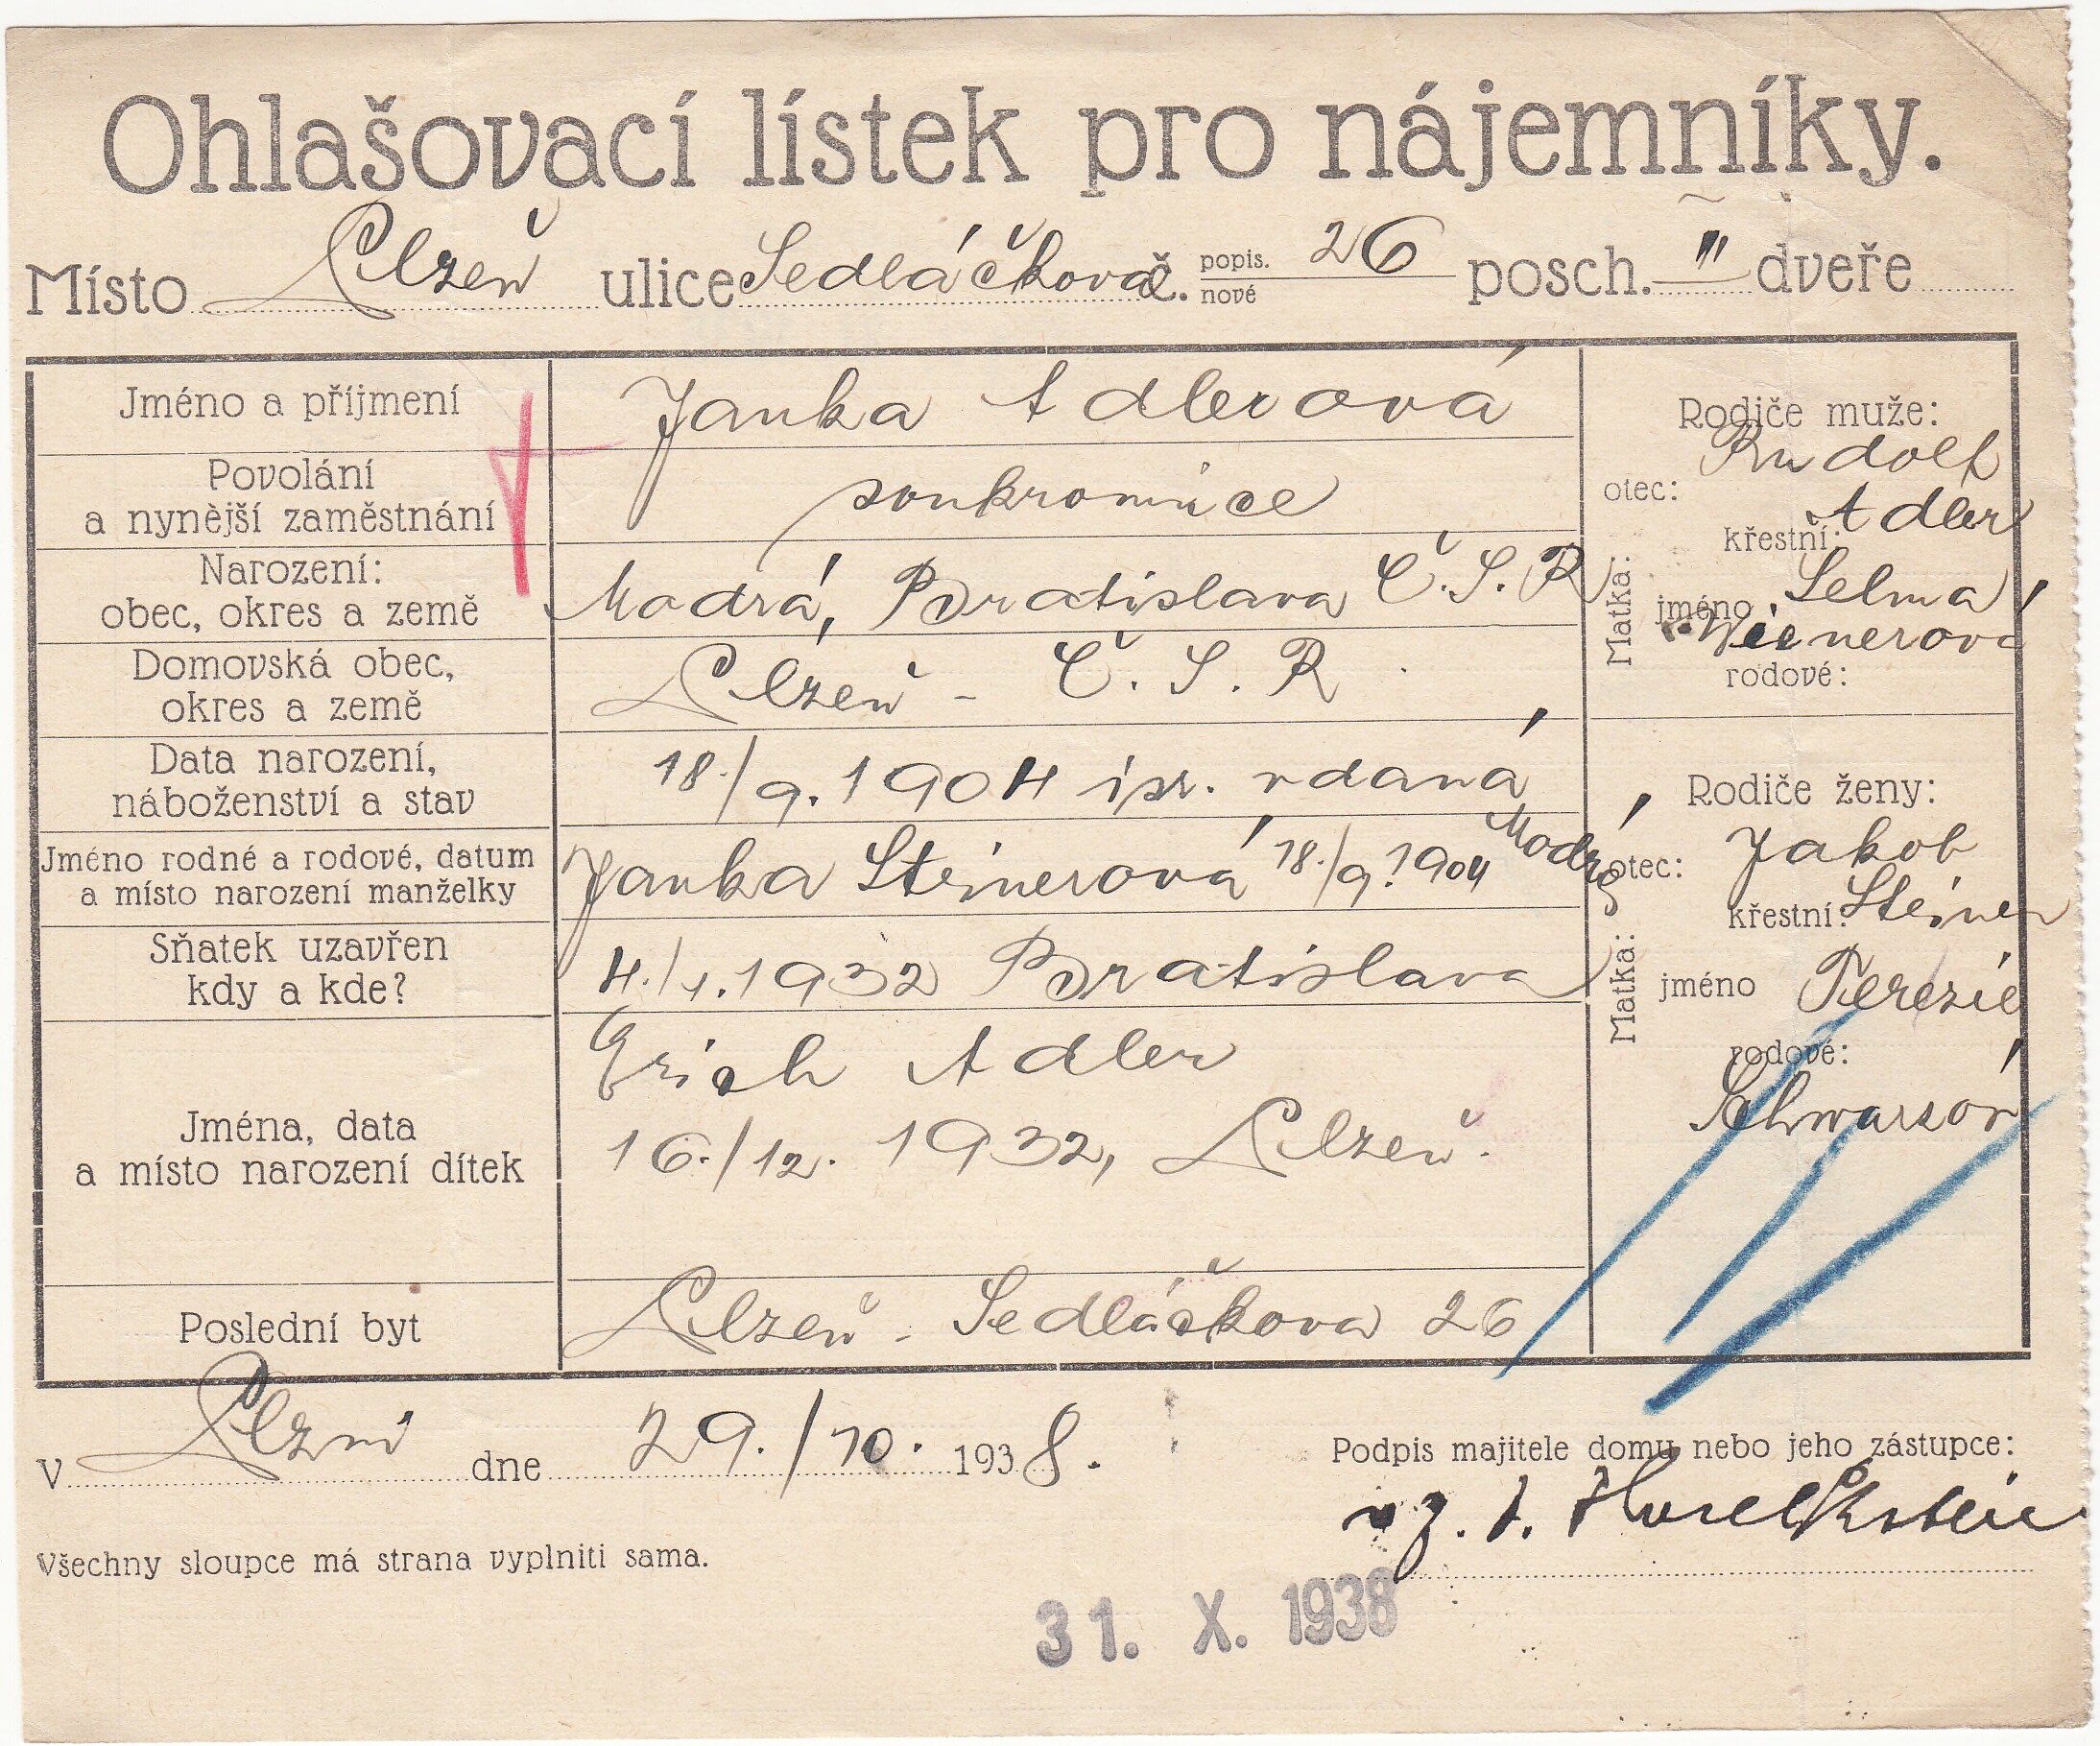 Ohlašovací lístek pro nájemníky.
Místo Plzeň ulice Sedláčkova č. popis. nové 26 posch. II dveře
Jméno a příjmení
Janka Adlerová
Povolání
a nynější zaměstnání
soukromnice
Narození:
obec, okres a země
Modrá, Bratislava Č.S.R
Domovská obec,
okres a země
Plzeň - Č.S.R
Data narození,
náboženství a stav
18./9.1904 isr. vdaná
Jméno rodné a rodové, datum
a místo narození manželky
Janka Steinerová 18./9.1904 Modrá
Sňatek uzavřen
kdy a kde?
4./1.1932 Bratislava
Jména, data
a místo narození dítek
Erich Adler
16./12. 1932, Plzeň.
Poslední byt
Plzeň - Sedláčkova 26
Rodiče muže:
otec: Rudolf
Adler
Matka:
křestní:
jméno Selma
Wienerová
rodové:
Rodiče ženy:
otec: Jakob
Steiner
Matka:
křestní:
jméno Terezie
rodové:
V Plzni dne 29./10. 1938.
Podpis majitele domu nebo jeho zástupce:
Všechny sloupce má strana vyplniti sama.
31. X. 1938